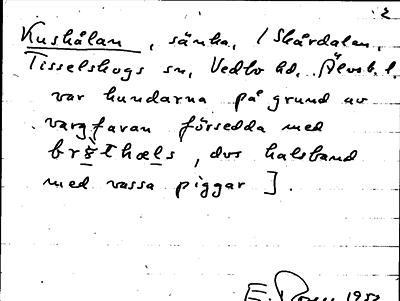 2
Kushålan, sänka, / Skårdalen,
Tisselskogs sn, Vedbo hd. Älvsb. l.
var hundarna på grund av
vargfaran försedda med
brøthæls, dvs halsband
med vassa piggar ].
E. 1952